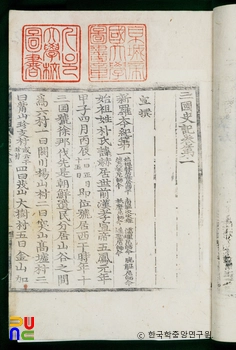 京城帝
國大學
圖書章
大學校
圖書
三國史記卷第一
宣撰
新羅本紀第一
始祖姓朴氏諱赫居世前漢孝宣帝五鳳元年
甲子四月丙辰一曰正月十五日即位號居西干時年十
三國號徐那伐先是朝鮮遺民分居山谷之間
爲六村一曰閼川楊山村二曰突山高墟村三
曰觜山珍支村或云干珍村四曰茂山大樹村五曰金山加
ⓒ 한국학중앙연구원